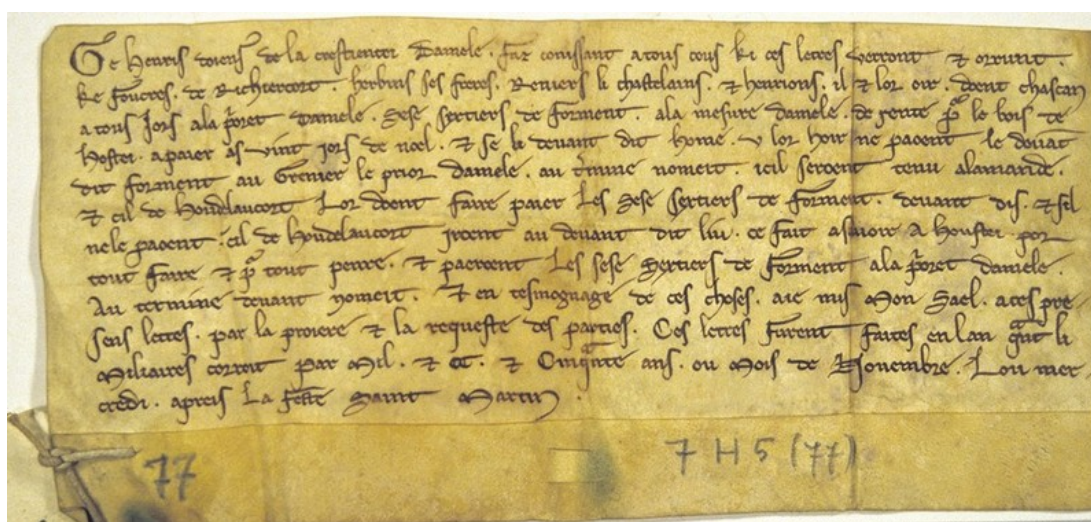 Ge henris doiens de la crestientei damele . faz conissant a tous cous ki ces letres verront & orrunt .
ke foucres . de Richiercort . herbins ses freres . Reniers li chastelains . & henrions . il & lor oir . doent chascan
a tous jors a la p̃oret damele . sese sestiers de forment . a la mesure damele . de rente p̃ le bois de
hestei . a paier as vint jors de noel . & se li devant dit home . v lor hoir ne paoent le dovãt
dit forment au Grenier le prior damele . au t̃mine nomeit . icil seroent tenu a lamande .
& cil de houdelaucort lor doent faire paier les sese sestiers de forment . devant dis . & sil
ne le paoent . cil de houdelaucort iroent au devant dit liu . ce fait asavoir A heustei . por
tout faire & p̃ tout penre . & paeroent les sese sestiers de forment a la p̃oret damele .
Au termine devant nomeit . & en tesmognage de ces choses . aie mis mon sael . a ces pre
sens lettres . par la proiere & la requeste des parties . Ces lettres furent faites en lan q̃nt li
miliaires corroit par mil . & CC . & Cinq̃nte ans . ou mois de Novembre . Lou mer
credi . apreis la feste saint martin .
77
7 H 5 (77)